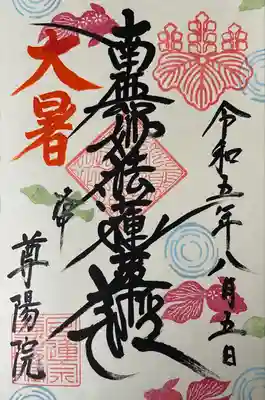 令和五年八月五日
南無妙法蓮華経
大暑
尊陽院